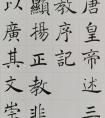 唐皇帝述三
教序記
顯揚正教非
以廣其文崇